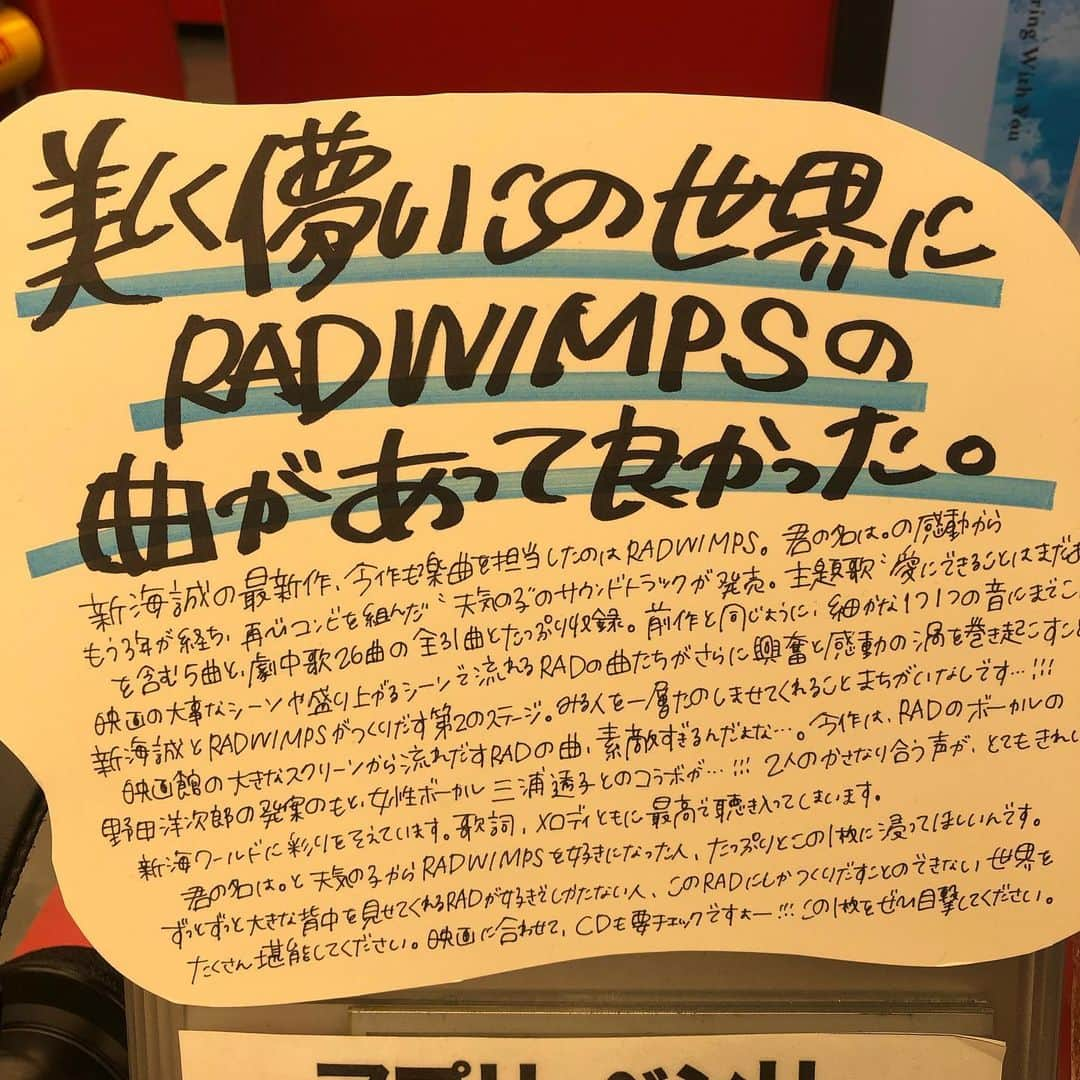 ring With You
美しく儚いこの世界に
RADWIMPSの
曲があって良かった。
新海誠の最新作、今作も楽曲を担当したのはRADWIMPS。君の名は。の感動から
もう3年が経ち、再びコンビを組んだ〝天気の子〟のサウンドトラックが発売。主題歌〝愛にできることはまだ
を含む5曲と、劇中歌26曲の全31曲とたっぷり収録。前作と同じように、細かな1つ1つの音にまでこ
映画の大事なシーンや盛り上がるシーンで流れるRADの曲たちがさらに興奮と感動の渦を巻き起こすん
新海誠とRADWIMPSがつくりだす第2のステージ。みる人を一層たのしませてくれることまちがいなしです…!!!
映画館の大きなスクリーンから流れだすRADの曲、素敵すぎるんだよな…。今作は、RADのボーカルの
野田洋次郎の発案のもと、女性ボーカル三浦透子とのコラボが…!!! 2人のかさなり合う声が、とてもきれい
新海ワールドに彩りをそえています。歌詞、メロディともに最高で聴き入ってしまいます。
君の名は。と天気の子からRADWIMPSを好きになった人、たっぷりとこの1枚に浸ってほしいんです。
ずっとずっと大きな背中を見せてくれるRADが好きでしかたない人、このRADにしかつくりだすことのできない世界を
たくさん堪能してください。映画に合わせて、CDも要チェックですぉー!!! この1枚をぜひ目撃してください。